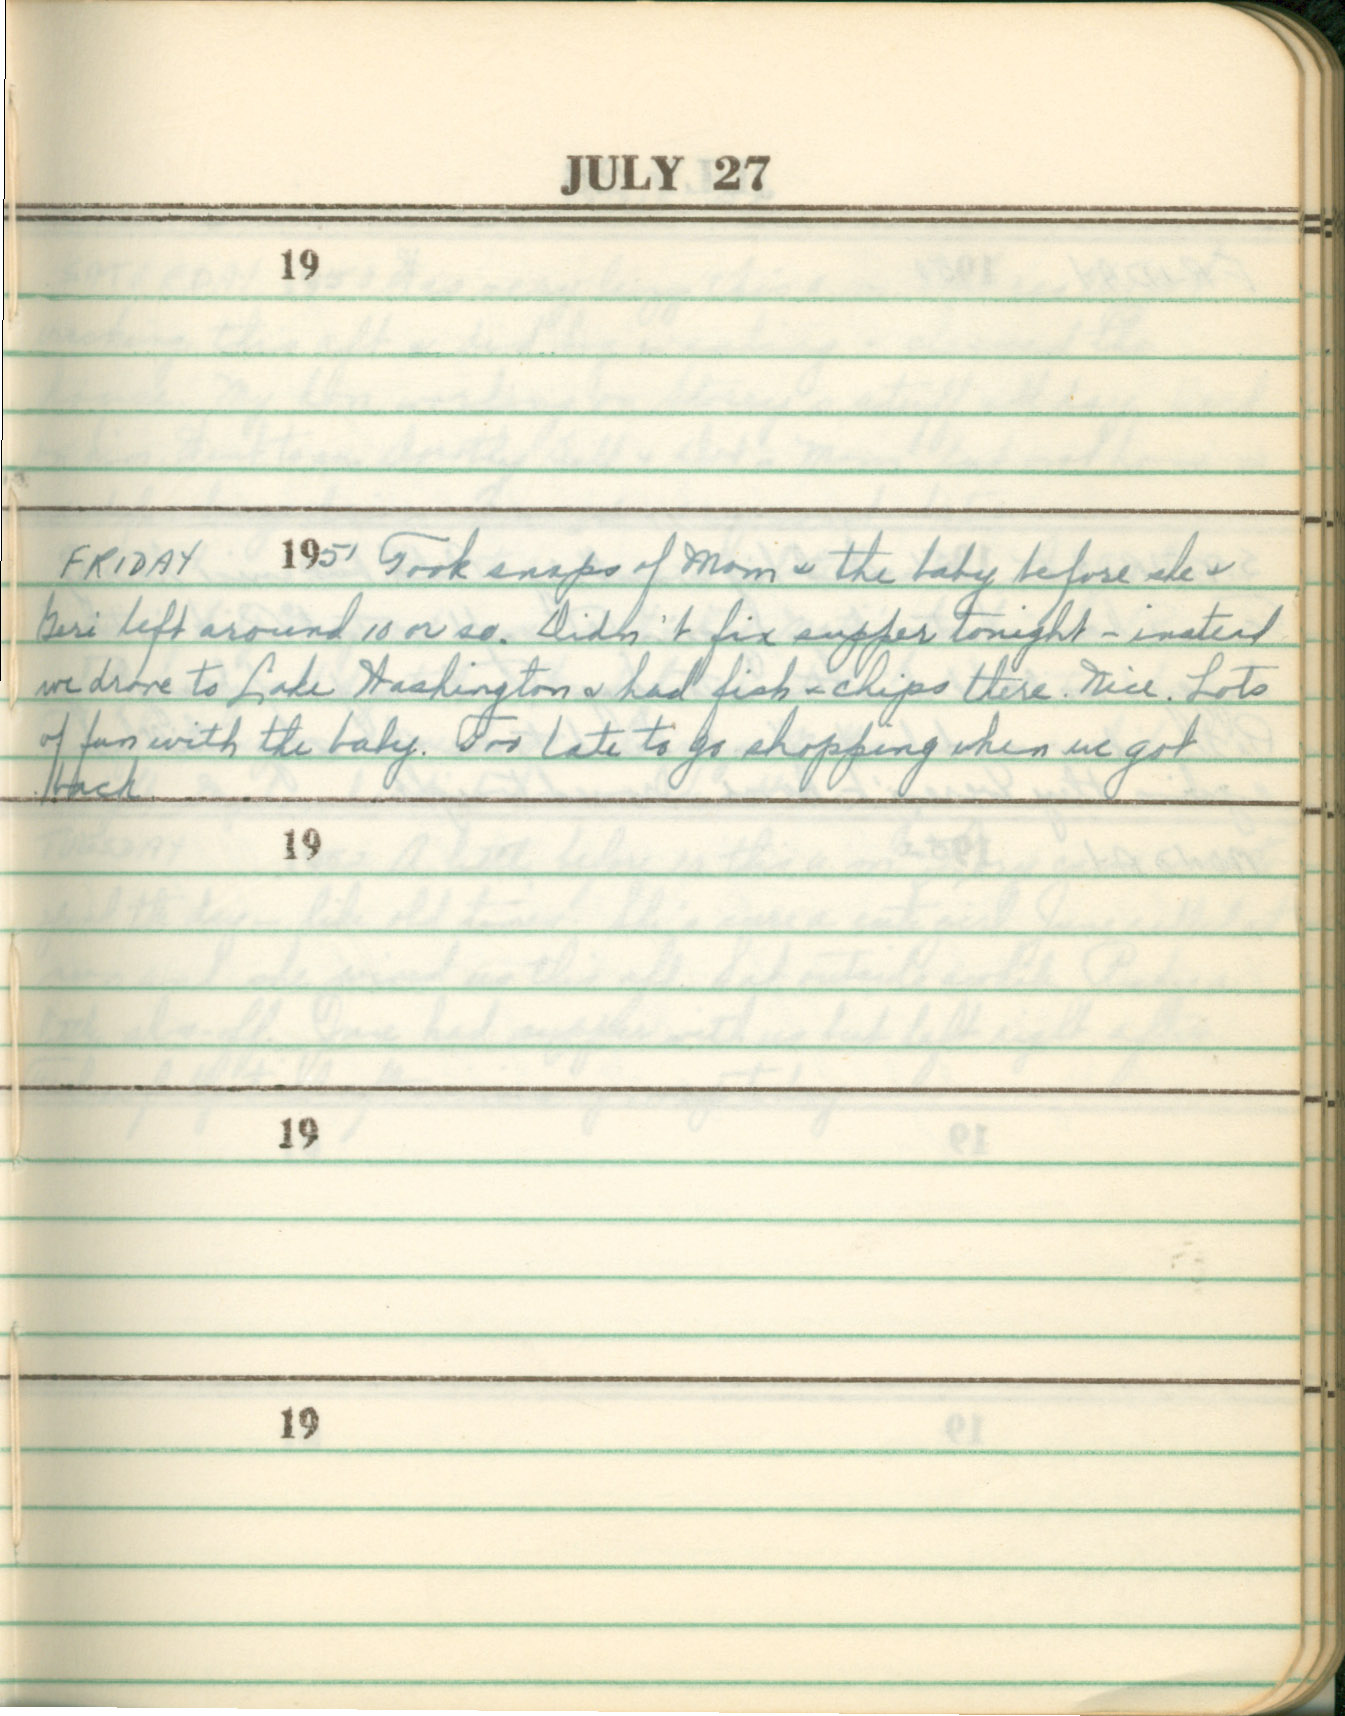 JULY 27
19
FRIDAY 1951 Took snaps of Mom & the baby before she &
Geri left around 10 or so. Didn't fix supper tonight - instead
we drove to Lake Washington & had fish & chips there. Nice. Lots
of fun with the baby. Too late to go shopping when we got
back.
19
19
19